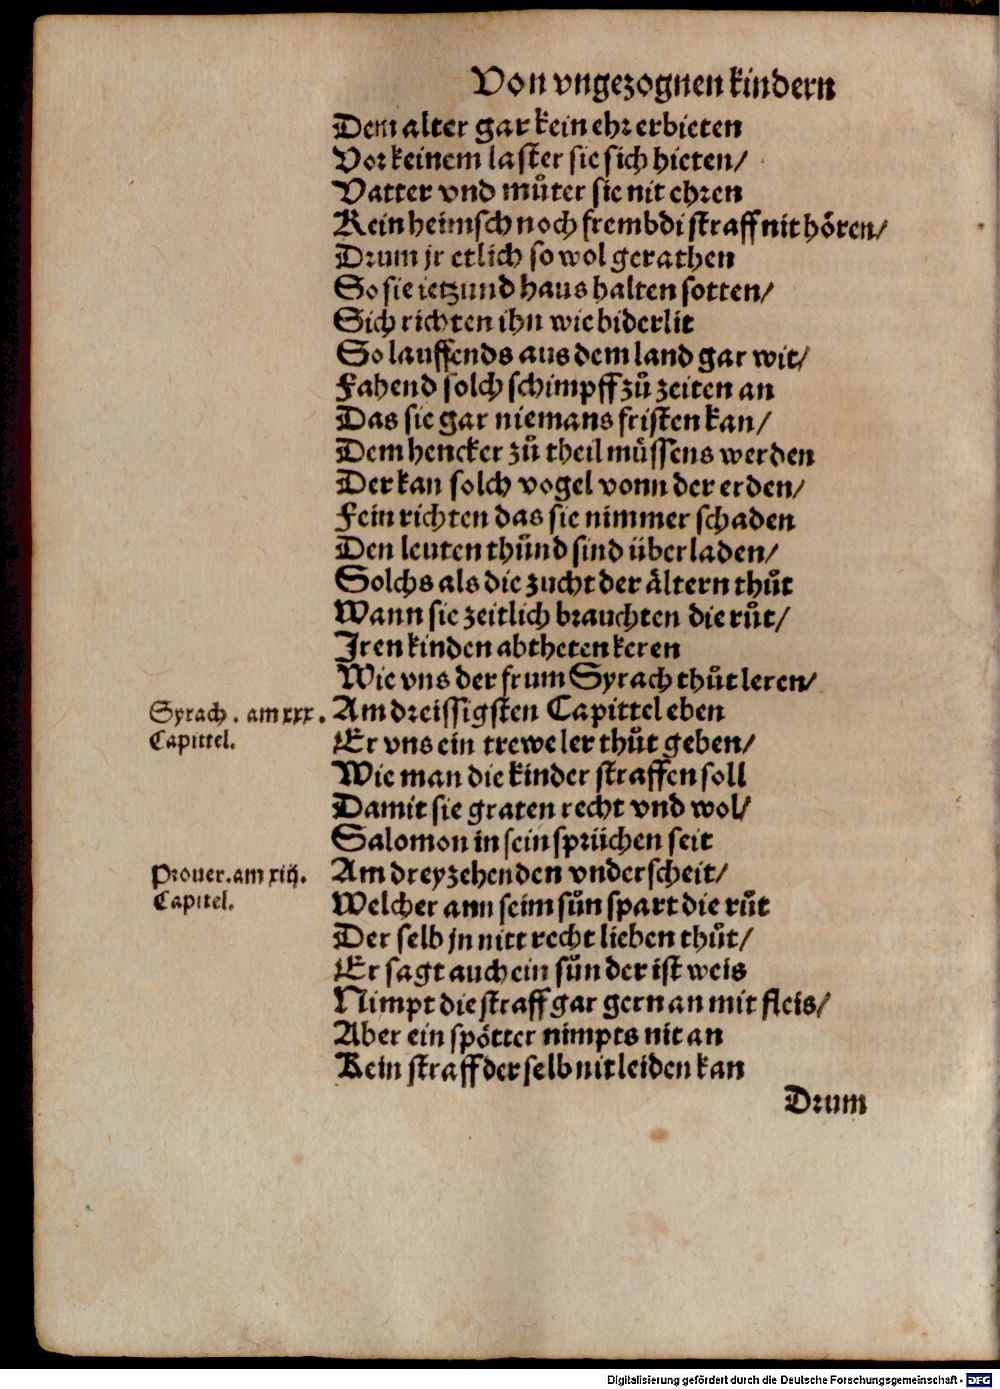 Von vngezognen kindern
Dem alter gar kein ehr erbieten
Vor keinem laster sie sich hieten/
Vatter vnd můter sie nit ehren
Kein heimsch noch frembdi straff nit hören/
Drum jr etlich so wol gerathen
So sie ietzund haus halten sotten/
Sich richten ihn wie biderlit
So lauffends aus dem land gar wit/
Fahend solch schimpff zů zeiten an
Das sie gar niemans fristen kan/
Dem hencker zů theil müssens werden
Der kan solch vogel vonn der erden/
Fein richten das sie nimmer schaden
Den leuten thůnd sind überladen/
Solchs als die zucht der ältern thůt
Wann sie zeitlich brauchten die růt/
Iren kinden abtheten keren
Wie vns der frum Syrach thůt leren/
Syrach . am xxx. Am dreissigsten Capittel eben
Capittel. Er vns ein trewe ler thůt geben/
Wie man die kinder straffen soll
Damit sie graten recht vnd wol/
Salomon in sein sprüchen seit
Prouer. am xiij. Am dreyzehenden vnderscheit/
Capitel. Welcher ann seim sůn spart die růt
Der selb jn nitt recht lieben thůt/
Er sagt auch ein sůn der ist weis
Nimpt die straff gar gern an mit fleis/
Aber ein spötter nimpts nit an
Kein straff der selb nit leiden kan
Drum
Digitalisierung gefördert durch die Deutsche Forschungsgemeinschaft - DFG